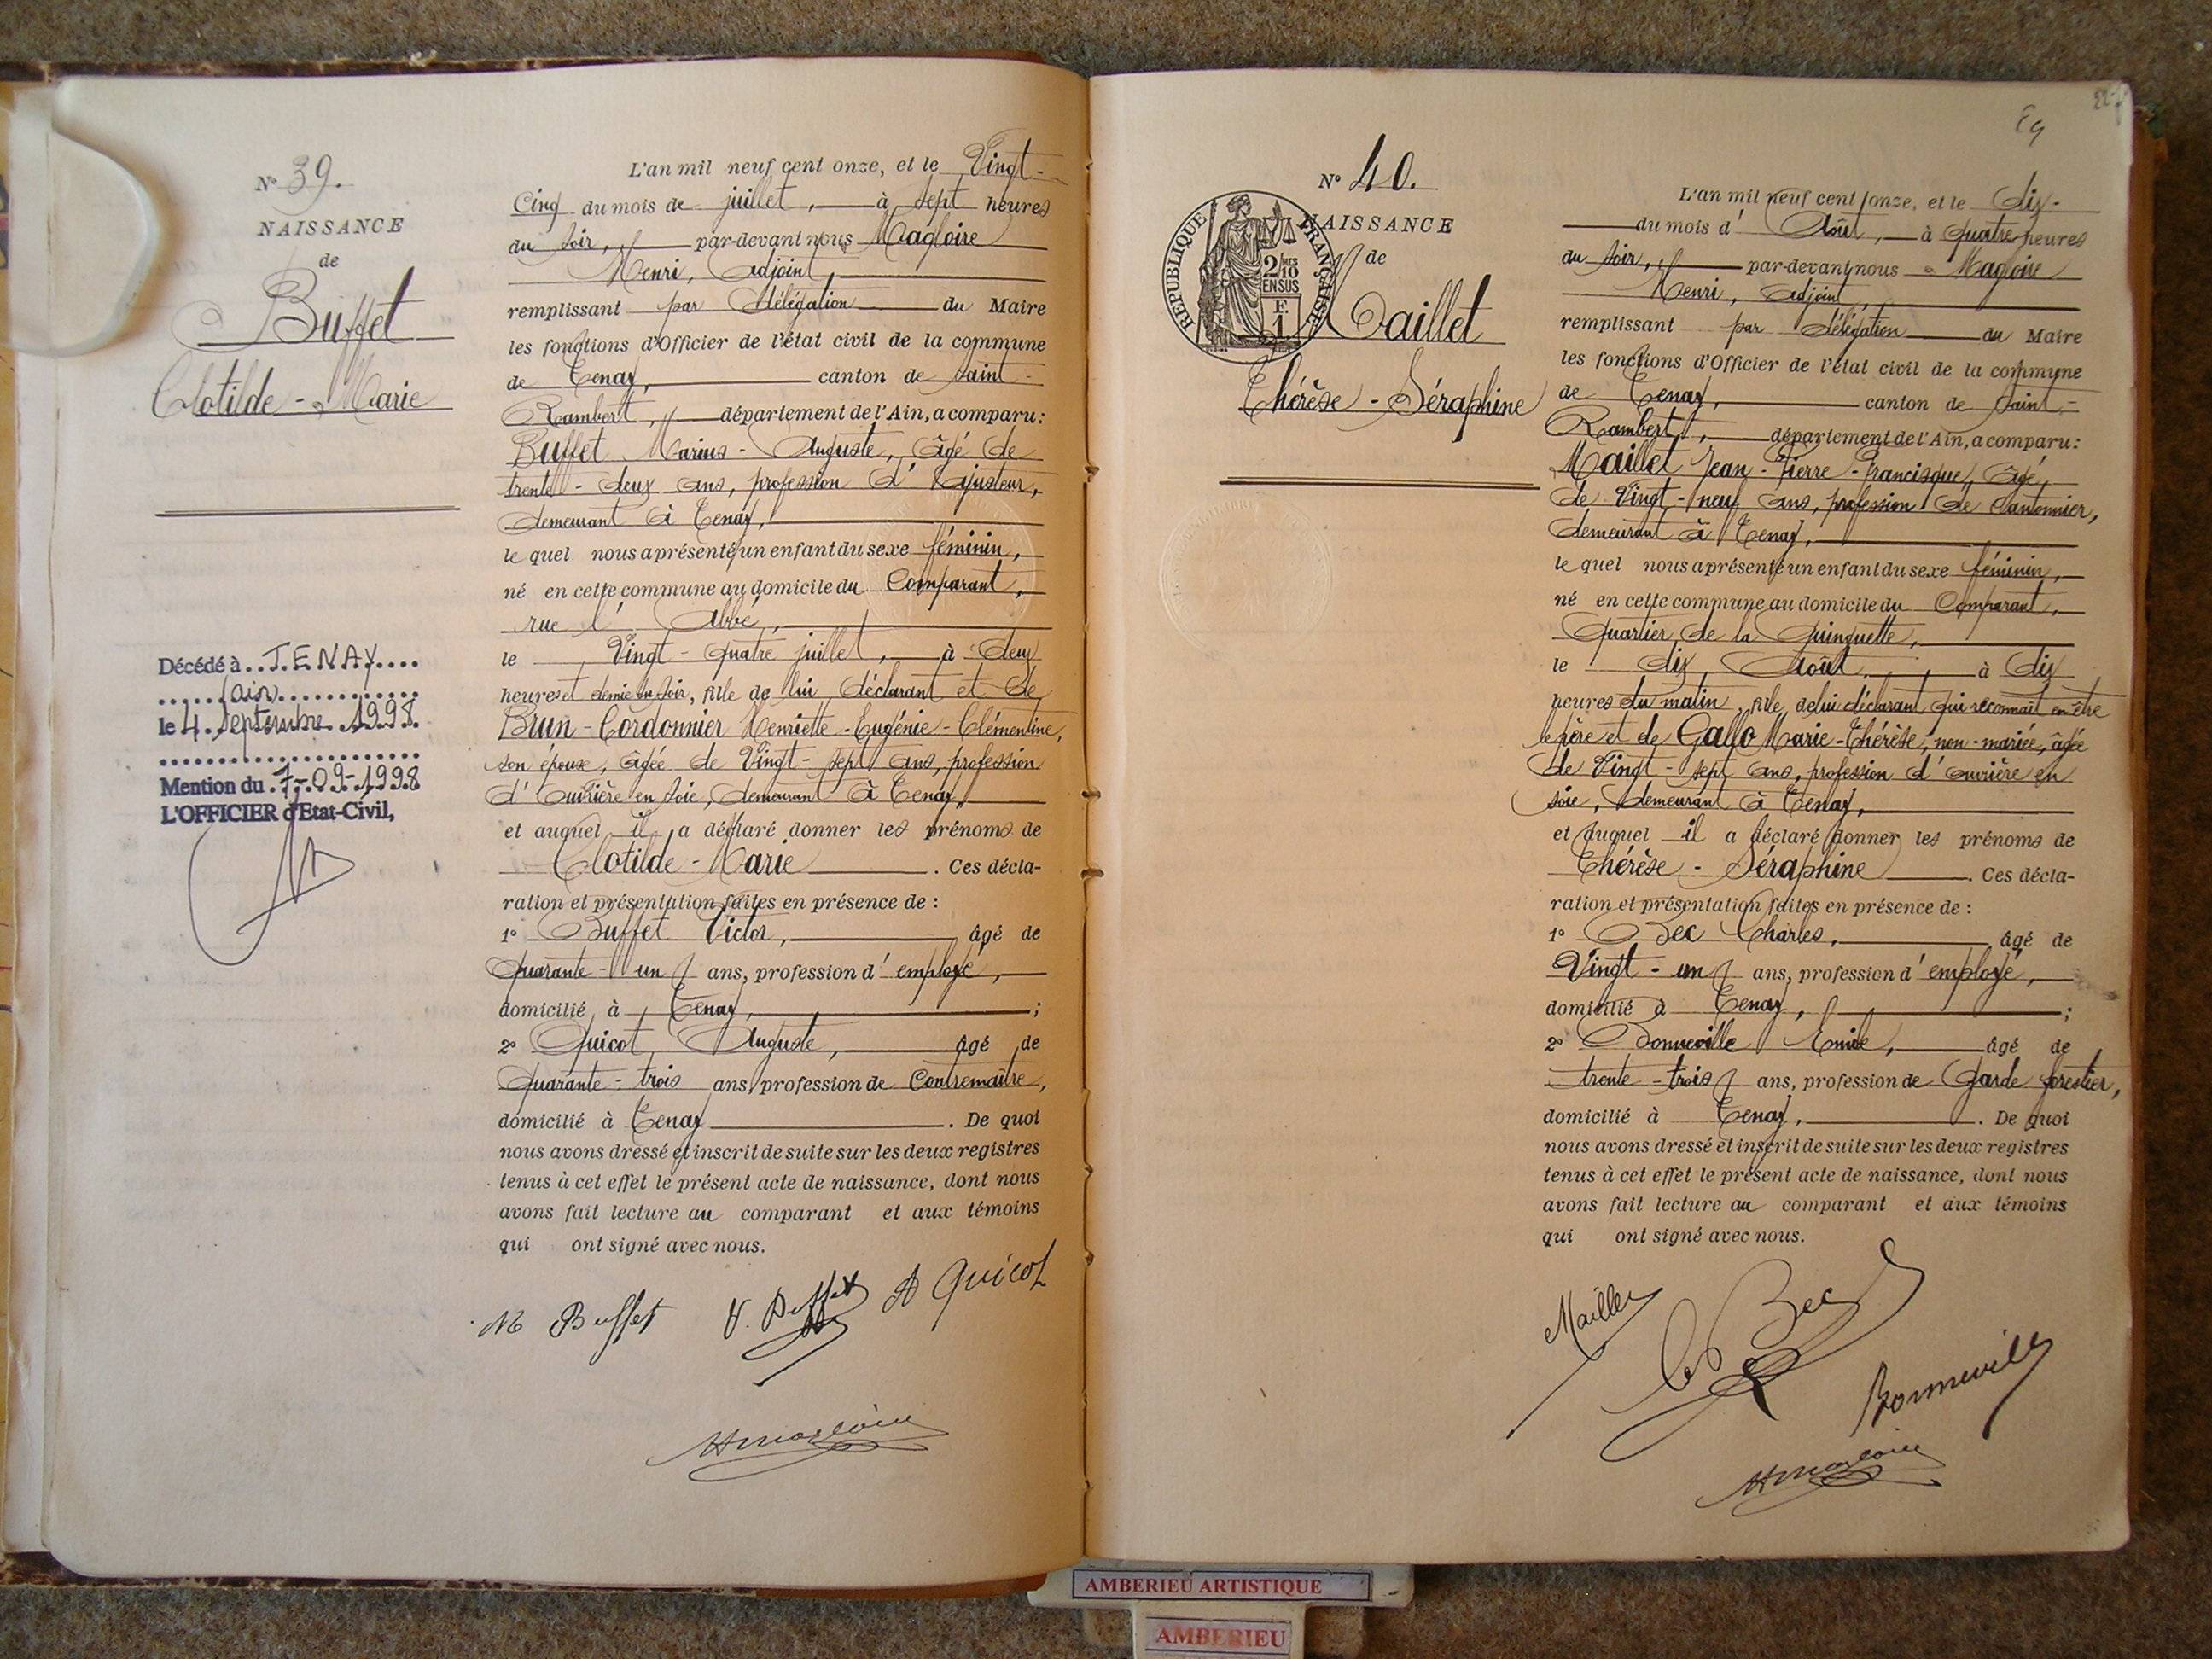 N° 39.
NAISSANCE
de
Buffet
Clotilde - Marie
Décédé à ..TENAY....
(ain)
le 4. Septembre 1998.
Mention du .7.-09-1998
L'OFFICIER d'Etat-Civil,
L'an mil neuf cent onze, et le Vingt-
Cinq du mois de juillet, à sept heures
du soir, par-devant nous Magloire
Henri, adjoint,
remplissant par délégation du Maire
les fonctions d'Officier de l'état civil de la commune
de Tenay, canton de Saint-
Rambert, département de l'Ain, a comparu:
Buffet Marius - Auguste, âgé de
trente - deux ans, profession d' Ajusteur,
demeurant à Tenay,
le quel nous a présenté un enfant du sexe féminin,
né en cette commune au domicile du Comparant,
rue l' Abbé,
le Vingt - quatre juillet, à deux
heures et demie du soir, fille de lui déclarant et de
Brun - Cordonnier Henriette - Eugénie - Clémentine,
son épouse, âgée de Vingt - sept ans, profession
d' ouvrière en soie, demeurant à Tenay,
et auquel il a déclaré donner les prénoms de
Clotilde - Marie . Ces décla-
ration et présentation faites en présence de :
1° Buffet Victor, âgé de
quarante - un ans, profession d' employé,
domicilié à Tenay, ;
2° Quicot Auguste, âgé de
quarante - trois ans, profession de Contremaître,
domicilié à Tenay . De quoi
nous avons dressé et inscrit de suite sur les deux registres
tenus à cet effet le présent acte de naissance, dont nous
avons fait lecture au comparant et aux témoins
qui ont signé avec nous.
M Buffet V. Buffet A Quicot
H Magloire
N° 40.
NAISSANCE
de
Maillet
Thérèse - Séraphine
RÉPUBLIQUE FRANÇAISE
2/10
EN SUS
F.
1
L'an mil neuf cent onze, et le dix-
du mois d' Août, à quatre heures
du soir, par-devant nous Magloire
Henri, adjoint,
remplissant par délégation du Maire
les fonctions d'Officier de l'état civil de la commune
de Tenay, canton de Saint-
Rambert, département de l'Ain, a comparu:
Maillet Jean - Pierre - Francisque, âgé,
de Vingt - neuf ans, profession de Cantonnier,
demeurant à Tenay,
le quel nous a présenté un enfant du sexe féminin,
né en cette commune au domicile du Comparant,
Quartier de la Guinguette,
le dix Août, à dix
heures du matin, fille de lui déclarant qui reconnaît en être
le père et de Gallo Marie - Thérèse, non - mariée, âgée
de Vingt - sept ans, profession d' ouvrière en
soie, demeurant à Tenay,
et auquel il a déclaré donner les prénoms de
Thérèse - Séraphine . Ces décla-
ration et présentation faites en présence de :
1° Bec Charles, âgé de
Vingt - un ans, profession d' employé,
domicilié à Tenay, ;
2° Bonneville Emile, âgé de
trente - trois ans, profession de Garde forestier,
domicilié à Tenay, . De quoi
nous avons dressé et inscrit de suite sur les deux registres
tenus à cet effet le présent acte de naissance, dont nous
avons fait lecture au comparant et aux témoins
qui ont signé avec nous.
Maillet
Bec
Bonneville
H Magloire
AMBERIEU ARTISTIQUE
AMBERIEU